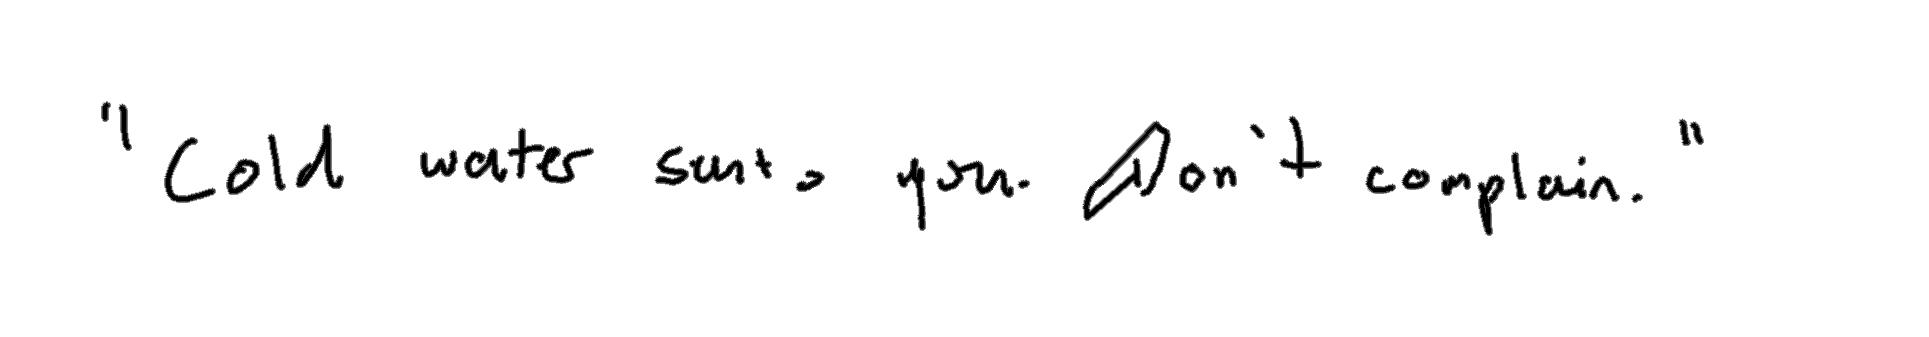 "Cold water suits you. Don't complain."